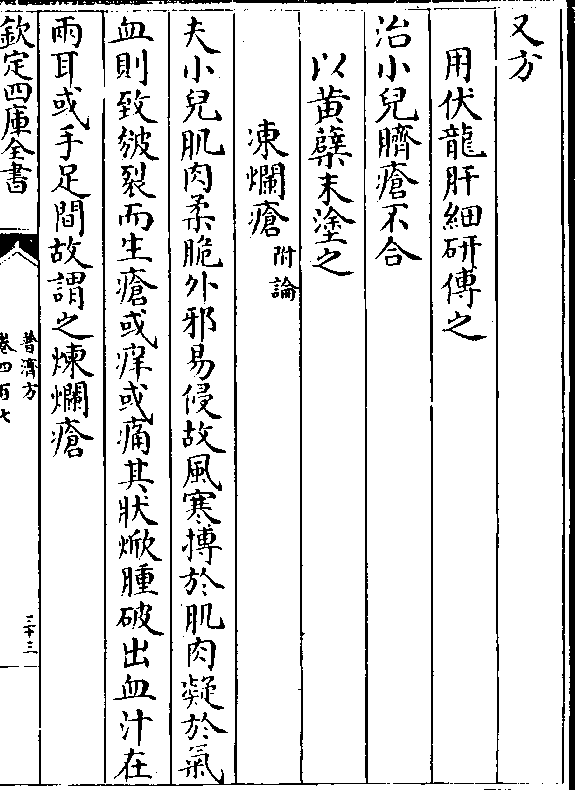 又方
用伏龍肝細研傅之
治小兒臍瘡不合
以黄蘗末塗之
凍爛瘡附論
夫小兒肌肉柔脆外邪易侵故風寒搏於肌肉凝於氣
血則致皴裂而生瘡或痒或痛其狀焮腫破出血汁在
兩耳或手足間故謂之煉爛瘡
欽定四庫全書
普濟方
卷四百七
三十三